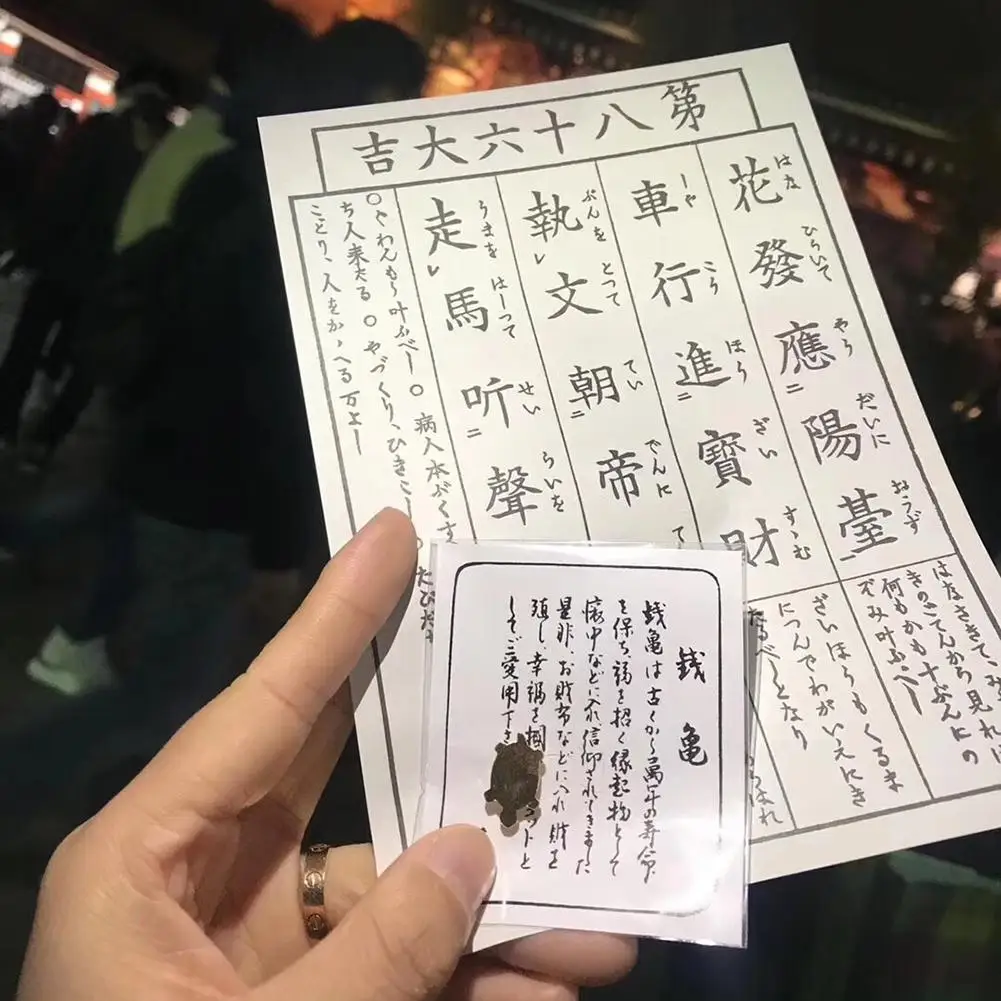 第八十六大吉
花發應陽臺
はな ひらいて やう だいに おうず
車行進寶財
しや こう ほう ざい すゝむ
執文朝帝
ぶんを とつて てい でんに
走馬听聲
うまを はしつて せい らいを
はなさきて、み
きのごてんから見れば
何もかも十ぶんにの
ぞみ叶ふべし
ざいほうもくるま
につんでわがいえにき
たるべしとなり
○ぐわんもう叶ふべし ○病人本ぶくす
ち人来たる ○やづくり、ひきこし ○たびだち
ことり、人をかゝへる万よし
銭亀
銭亀は古くから萬年の寿命
を保ち、福を招く縁起物として
懐中などに入れ、信仰されてきました
是非、お財布などに入れ財を
殖し、幸福を掴 コットと
してご愛用下さ